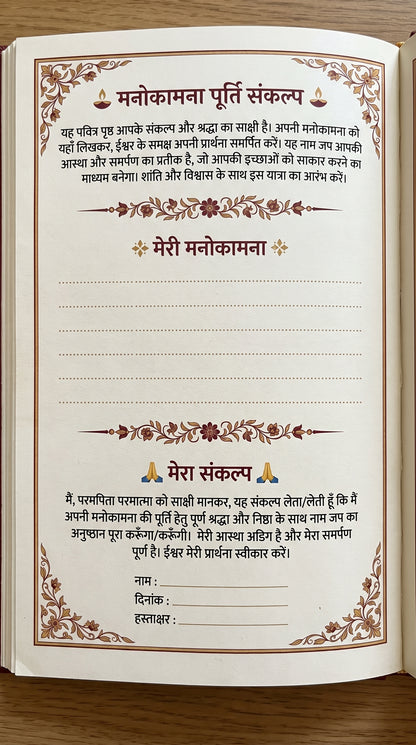 मनोकामना पूर्ति संकल्प
यह पवित्र पृष्ठ आपके संकल्प और श्रद्धा का साक्षी है। अपनी मनोकामना को
यहाँ लिखकर, ईश्वर के समक्ष अपनी प्रार्थना समर्पित करें। यह नाम जप आपकी
आस्था और समर्पण का प्रतीक है, जो आपकी इच्छाओं को साकार करने का
माध्यम बनेगा। शांति और विश्वास के साथ इस यात्रा का आरंभ करें।
मेरी मनोकामना
मेरा संकल्प
मैं, परमपिता परमात्मा को साक्षी मानकर, यह संकल्प लेता/लेती हूँ कि मैं
अपनी मनोकामना की पूर्ति हेतु पूर्ण श्रद्धा और निष्ठा के साथ नाम जप का
अनुष्ठान पूरा करूँगा/करूँगी। मेरी आस्था अडिग है और मेरा समर्पण
पूर्ण है। ईश्वर मेरी प्रार्थना स्वीकार करें।
नाम :
दिनांक :
हस्ताक्षर :